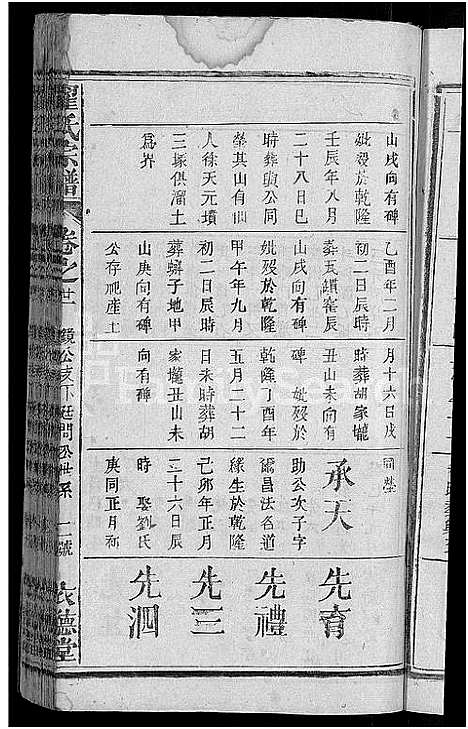 山戌向有碑
妣殁於乾隆
壬辰年八月
二十八日巳
時葬與公同
塋其山有
人徐天元墳
三塚供溜土
為界
乙酉年二月
初二日辰時
葬五鎖窰辰
山戌向有碑
妣殁於乾隆
甲午年九月
初二日辰時
葬蠏子地甲
山庚向有碑
公存祀產土
月十六日戌
時葬胡家壠
丑山未向有
碑 妣殁於
乾隆丁酉年
五月二十二
日未時葬胡
家壠丑山未
向有碑
同塋
承天
助公次子字
昌法名道
緣生於乾隆
己卯年正月
二十六日辰
時 娶劉氏
庚同正月初
先育
先禮
先三
先泗
氏宗譜
卷之廿
公支下廷問公世系
一號
德堂